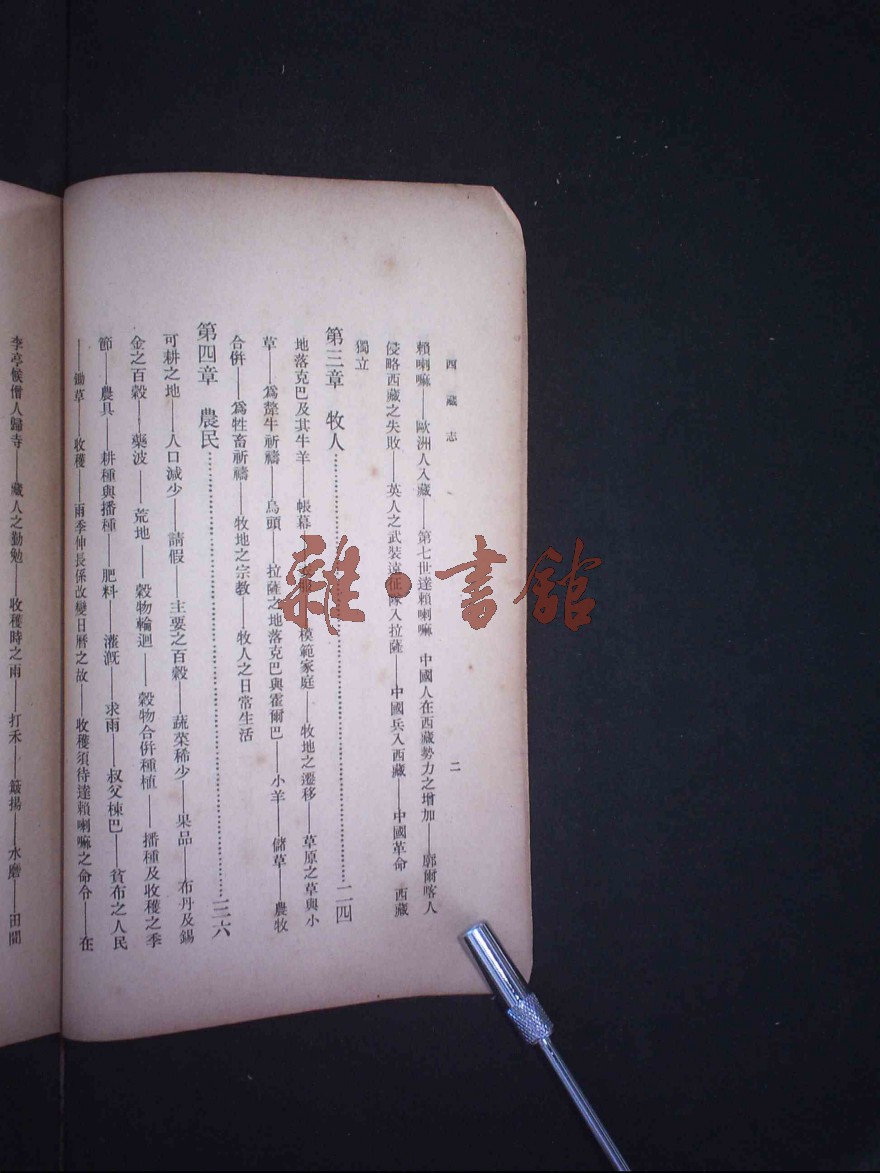 西藏志
二
賴喇嘛——歐洲人入藏——第七世達賴喇嘛 中國人在西藏勢力之增加——廓爾喀人
侵略西藏之失敗——英人之武裝遠征隊入拉薩——中國兵入西藏——中國革命 西藏
獨立
第三章 牧人……二四
地落克巴及其牛羊——帳幕——模範家庭——牧地之遷移——草原之草與小
草——爲犛牛祈禱——烏頭——拉薩之地落克巴與霍爾巴——小羊——儲草——農牧
合併——爲牲畜祈禱——牧地之宗教——牧人之日常生活
第四章 農民……三六
可耕之地——人口減少——請假——主要之百穀——蔬菜稀少——果品——布丹及錫
金之百穀——藥波——荒地——穀物輪迴——穀物合併種植——播種及收穫之季
節——農具——耕種與播種——肥料——灌漑——求雨——叔父棟巴——貧布之人民
——鋤草——收穫——雨季伸長係改變日曆之故——收穫須待達賴喇嘛之命令——在
李亭候僧人歸寺——藏人之勤勉——收穫時之雨——打禾——簸揚——水磨——田間
雜·書館